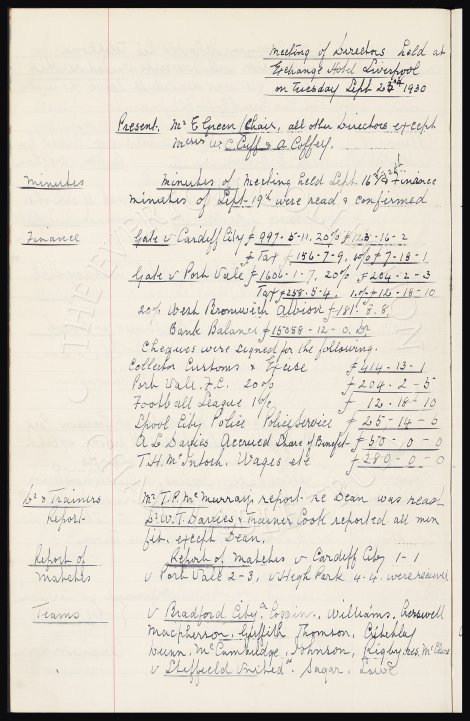 Meeting of Directors held at
Exchange Hotel Liverpool
on Tuesday Sept 23rd 1930
Present. Mr E Green/Chair, all other Directors except
Messrs W. C. Cuff & A. Coffey.
Minutes
Minutes of Meeting held Sept 16th & Finance
Minutes of Sept 19th were read & confirmed
Finance
Gate v Cardiff City £997-5-11, 20% £123-16-2
£ Tax £156-7-9, 1% £7-18-1
Gate v Port Vale £1606-1-7, 20% £204-2-3
Tax £258-5-4, 1% £12-18-10
20% West Bromwich Albion £181-8-8
Bank Balance £15058-12-0. Dr
Cheques were signed for the following.
Collector Customs & Excise £414-13-1
Port Vale. F.C. 20% £204-2-5
Football League 1% £12-18-10
Lpool City Police Police Service £25-14-6
A L Davies Accrued Share of Benefit £50-10-0
T. H. McIntosh. Wages etc £280-0-0
Dr & Trainers
Report
Mr T. P. McMurray, report re Dean was read
Dr W. T. Davies & Trainer Cook reported all men
fit. except Dean.
Report of
Matches
Report of Matches v Cardiff City 1-1
v Port Vale 2-3, v High Park 4-4. were received
Teams
v Bradford City A. Coggins. Williams. Cresswell
Macpherson. Griffith Thomson. Critchley
Dunn. McCambridge, Johnson, Rigby Res. McClure
v Sheffield United A. Sagar. Lowe